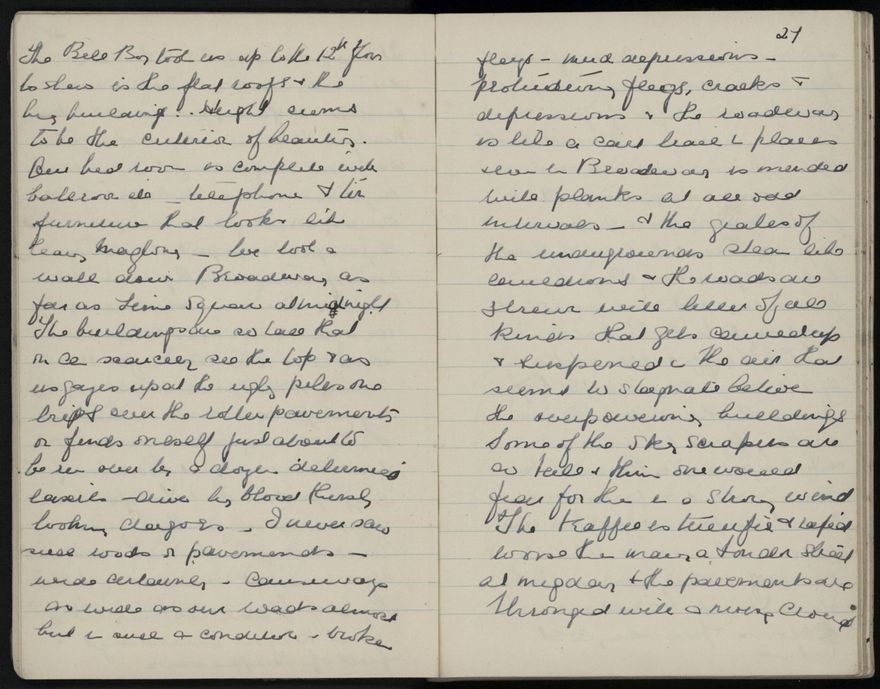 The Bell Boy took us up to the 12th floor
to show us the flat roofs & the
big buildings. Height seems
to be the criterion of beauty.
Our bed room is complete with
bathroom etc - telephone & tin
furniture that looks like
heavy mahogony - We took a
walk down Broadway as
far as Times Square at midnight
The buildings are so tall that
one can scarcely see the top & as
us gazes up at the ugly piles one
trips over the rotten pavements
or finds oneself just about to
be run over by a dozen determined
taxis - driven by blood thirsty
looking dagoes - I never saw
such roads or pavements -
wide certainly - causeways
as wide as our roads almost
but in such a condition - broken
21
flags - mud depressions -
protruding flags, cracks &
depressions & the roadway
is like a cart track in places
even in Broadway is mended
with planks at all odd
intervals - & the grates of
the undergrounds steam like
cauldrons & the roads are
strewn with litter of all
kinds that gets carried up
& suspended in the air that
seems to stagnate below
the overpowering buildings
Some of the sky scrapers are
so tall & thin one would
fear for the in a strong wind
The traffic is terrific & rapid
worse than many a London Street
at midday & the pavements are
thronged with a moving crowd